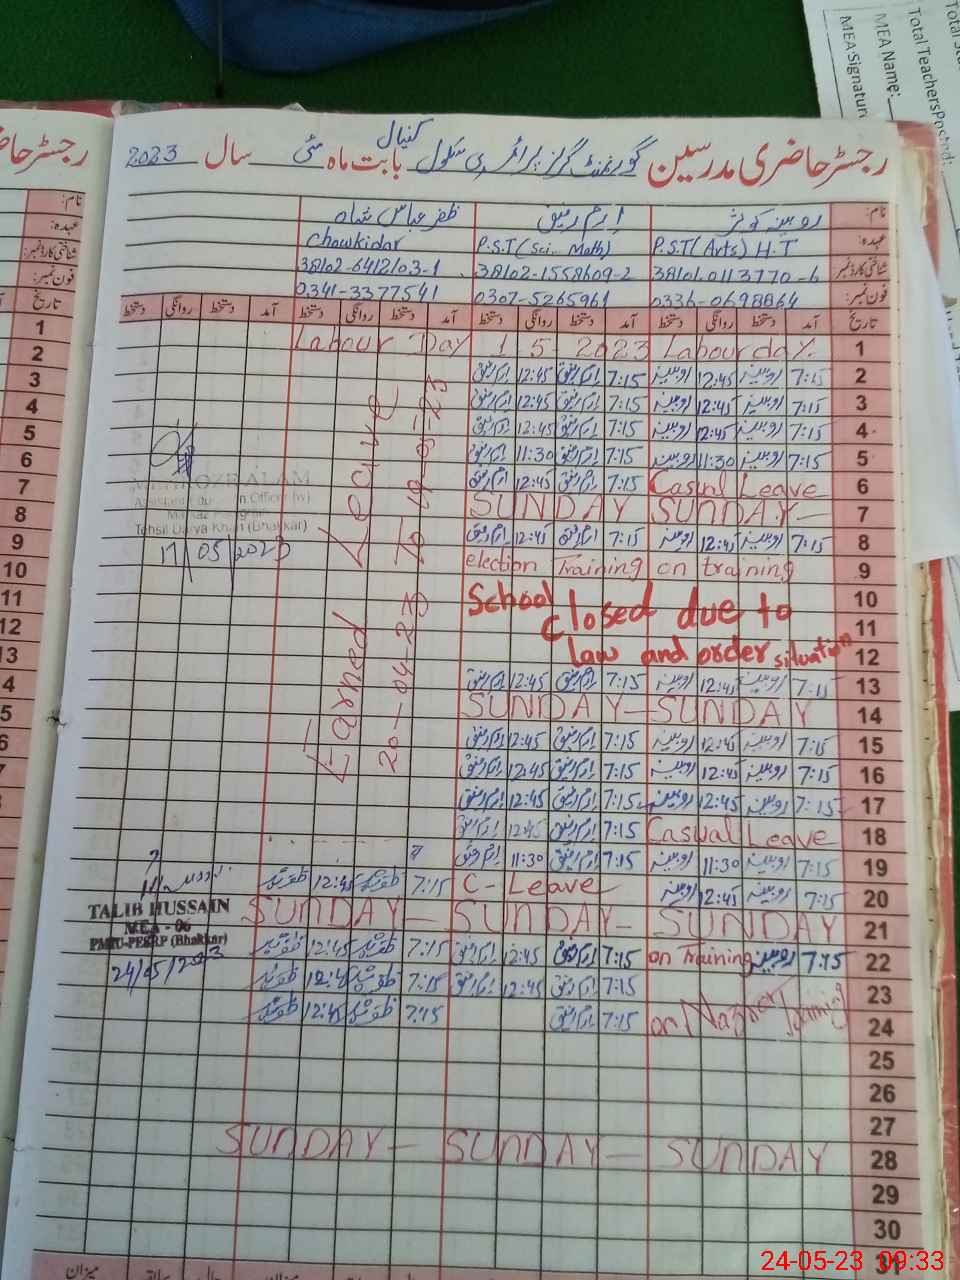 رجسٹر حاضری مدرسین گورنمنٹ گرلز پرائمری سکول کنیال بابت ماہ مئی سال 2023
نام: روبینہ کوثر ارم رفیق ظفر عباس شاہ
عہدہ: P.S.T (Arts) H.T P.S.T (Sci. Math) Chowkidar
شناختی کارڈ نمبر: 38101-0113770-6 38102-1558609-2 38102-6412103-1
فون نمبر: 0336-0698864 0307-5265961 0341-3377541
تاریخ آمد دستخط روانگی دستخط آمد دستخط روانگی دستخط آمد دستخط روانگی دستخط آمد دستخط روانگی دستخط
1 Labour Day 1-5-2023 Labour day.
2 7:15 روبینہ 12:45 روبینہ 7:15 ارم رفیق 12:45 ارم رفیق
3 7:15 روبینہ 12:45 روبینہ 7:15 ارم رفیق 12:45 ارم رفیق
4 7:15 روبینہ 12:45 روبینہ 7:15 ارم رفیق 12:45 ارم رفیق
5 7:15 روبینہ 11:30 روبینہ 7:15 ارم رفیق 11:30 ارم رفیق
6 Casual Leave 7:15 ارم رفیق 12:45 ارم رفیق
7 SUNDAY SUNDAY-
8 7:15 روبینہ 12:45 روبینہ 7:15 ارم رفیق 12:45 ارم رفیق
9 election Training on training
10 School Closed due to
11
12 law and order situation
13 7:15 روبینہ 12:45 روبینہ 7:15 ارم رفیق 12:45 ارم رفیق
14 SUNDAY-SUNDAY
15 7:15 روبینہ 12:45 روبینہ 7:15 ارم رفیق 12:45 ارم رفیق
16 7:15 روبینہ 12:45 روبینہ 7:15 ارم رفیق 12:45 ارم رفیق
17 7:15 روبینہ 12:45 روبینہ 7:15 ارم رفیق 12:45 ارم رفیق
18 Casual Leave 7:15 ارم رفیق 12:45 ارم رفیق
19 7:15 روبینہ 11:30 روبینہ 7:15 ارم رفیق 11:30 ارم رفیق
20 7:15 روبینہ 12:45 روبینہ C-Leave 7:15 12:45
21 SUNDAY-SUNDAY-SUNDAY
22 7:15 روبینہ on Training 7:15 ارم رفیق 12:45 ارم رفیق 7:15 12:45
23 7:15 ارم رفیق 12:45 ارم رفیق 7:15 12:45
24 on Training 7:15 ارم رفیق 7:15 12:45
25
26
27
28 SUNDAY-SUNDAY-SUNDAY
29
30
31
Earned Leave
20-04-23 To 19-05-23
ALAM
Tehsil Darya Khan (Bhakkar)
17/05/2023
TALIB HUSSAIN
MEA - 06
PMIU-PESRP (Bhakkar)
24/05/2023
رجسٹر حاضری
نام:
عہدہ:
شناختی کارڈ نمبر:
فون نمبر:
تاریخ
1
2
3
4
5
6
7
8
9
10
11
12
13
میزان
Total TeachersPosted:
MEA Name:
MEA Signature
24-05-23 09:33